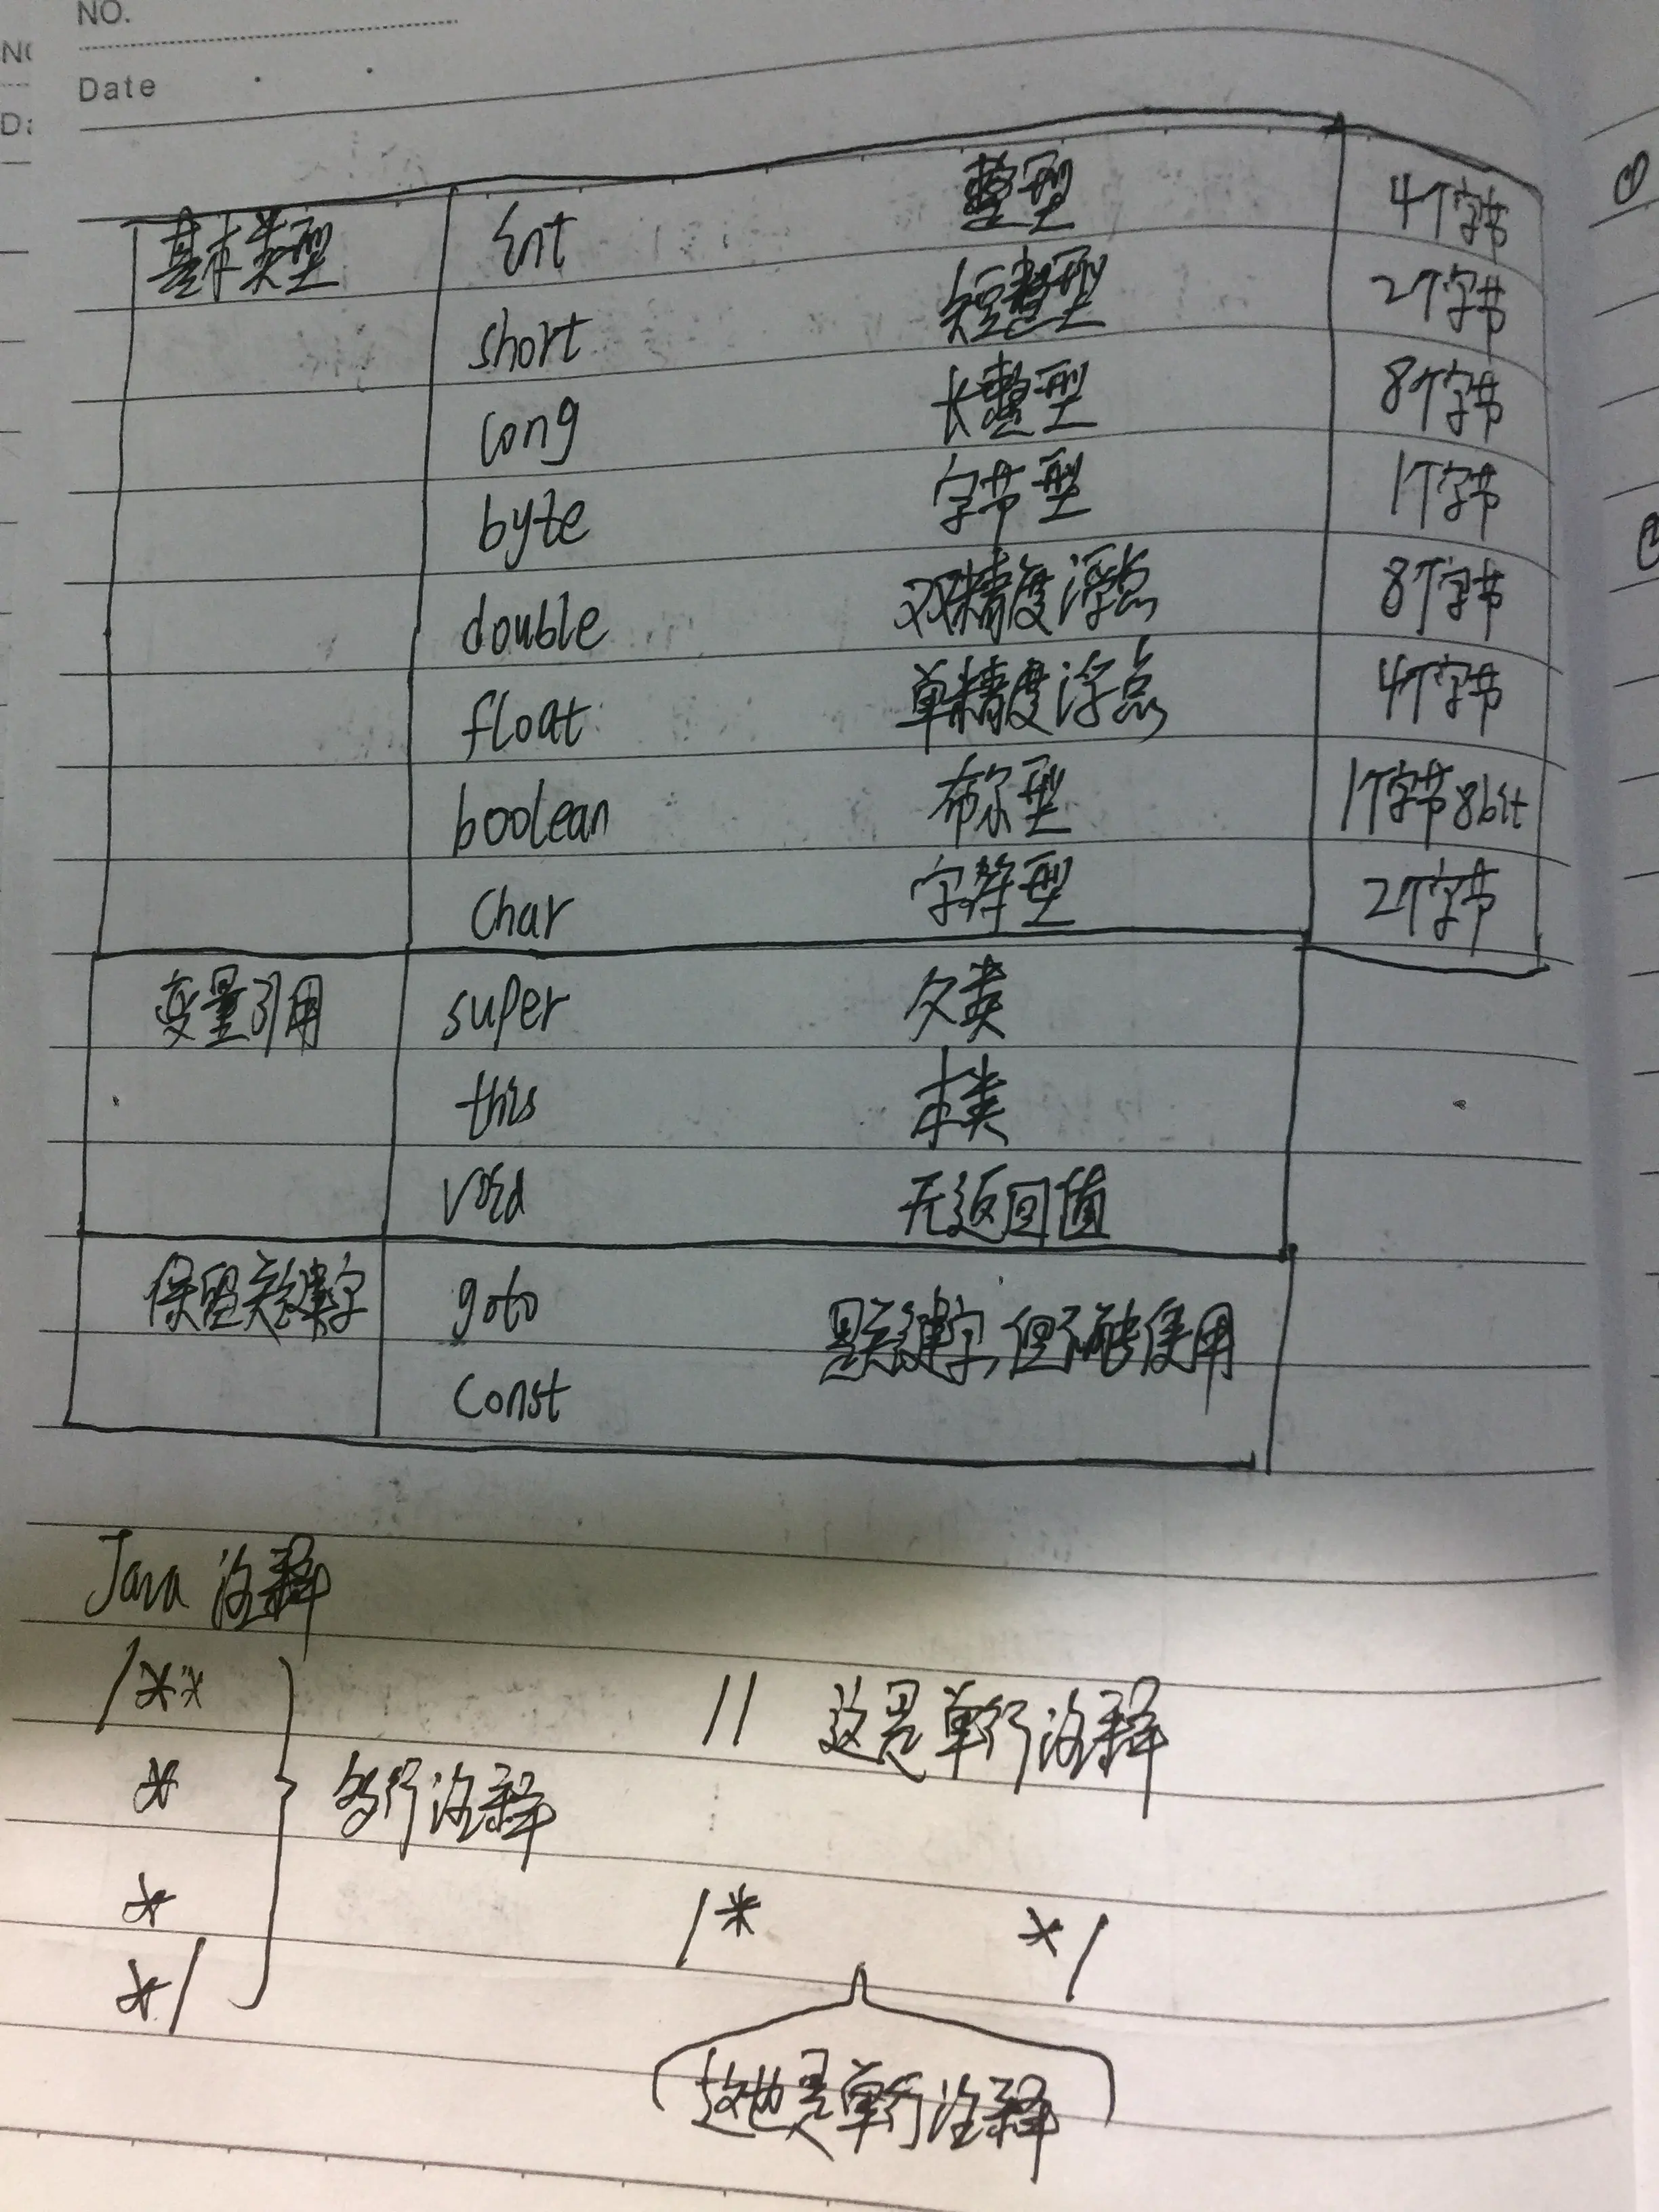 NO.
Date
基本类型 int 整型 4个字节
short 短整型 2个字节
long 长整型 8个字节
byte 字节型 1个字节
double 双精度浮点 8个字节
float 单精度浮点 4个字节
boolean 布尔型 1个字节8bit
char 字符型 2个字节
变量引用 super 父类
this 本类
void 无返回值
保留关键字 goto 是关键字,但不能使用
const
Java 注释
/** // 这是单行注释
* 多行注释
* /* */
*/
这也是单行注释